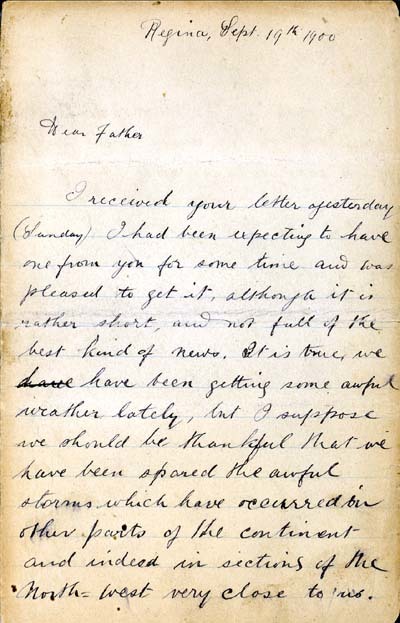 Regina, Sept. 19th 1900
Dear Father
I received your letter yesterday
(Sunday) I had been expecting to have
one from you for some time and was
pleased to get it, although it is
rather short, and not full of the
best kind of news. It is true, we
have have been getting some awful
weather lately, but I suppose
we should be thankful that we
have been spared the awful
storms which have occurred in
other parts of the continent
and indeed in sections of the
North-west very close to us.